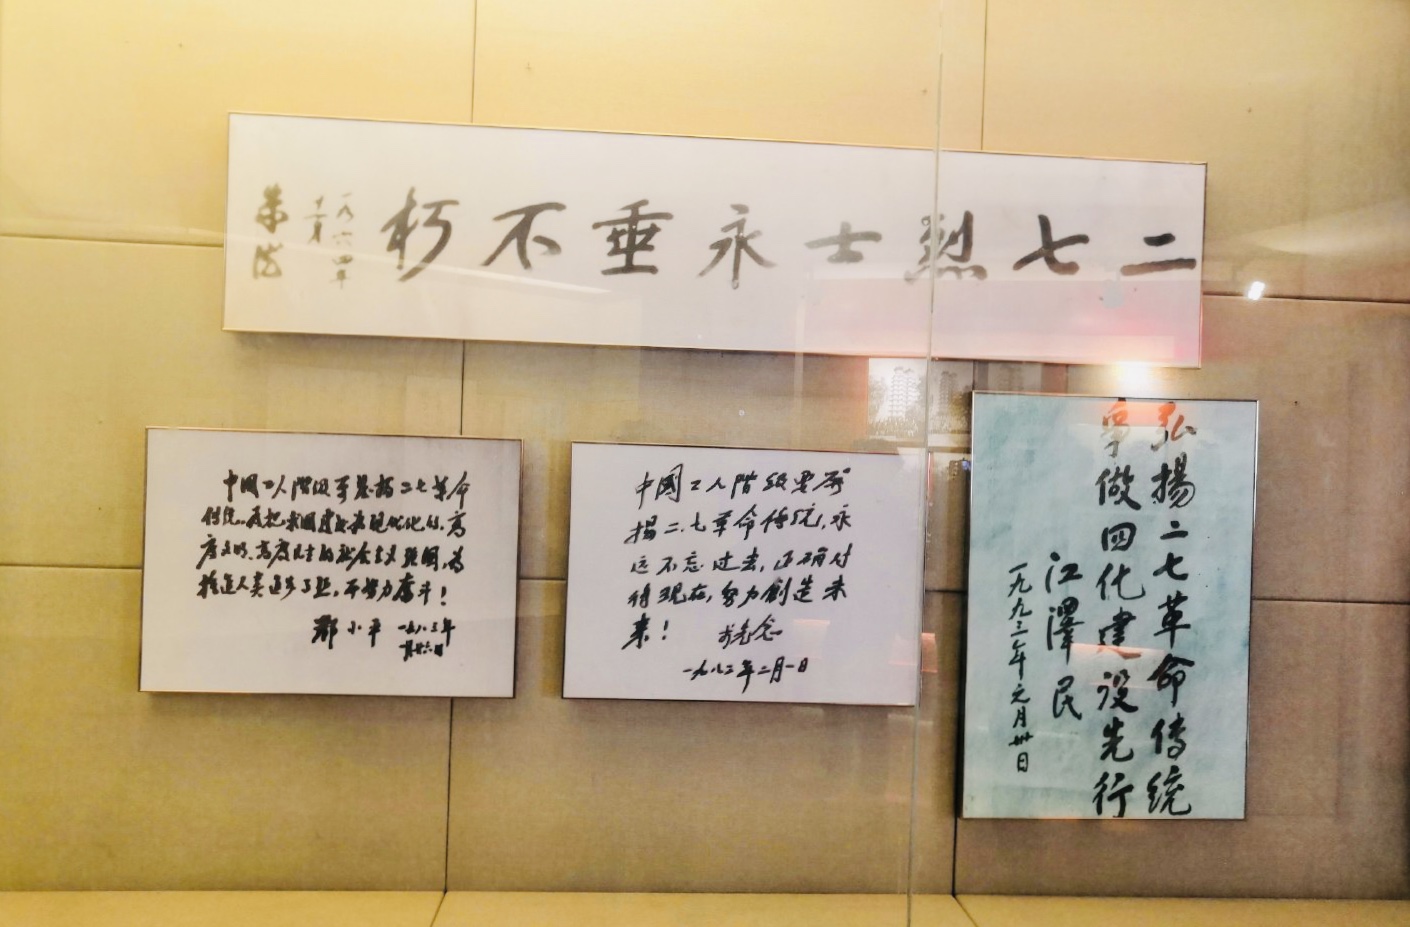 二七烈士永垂不朽
一九六四年
十一月
朱德
中国工人阶级要发扬二七革命
传统，要把我国建设成现代化的、高
度文明、高度民主的社会主义强国，为
推进人类进步事业，而努力奋斗！
邓小平 一九八三年
一月廿六日
中国工人阶级要发
揚二、七革命传统，永
远不忘过去，正确对
待现在，努力創造未
来！ 李先念
一九八三年二月一日
弘揚二七革命传统
争做四化建设先行
江澤民
一九九三年元月卅日